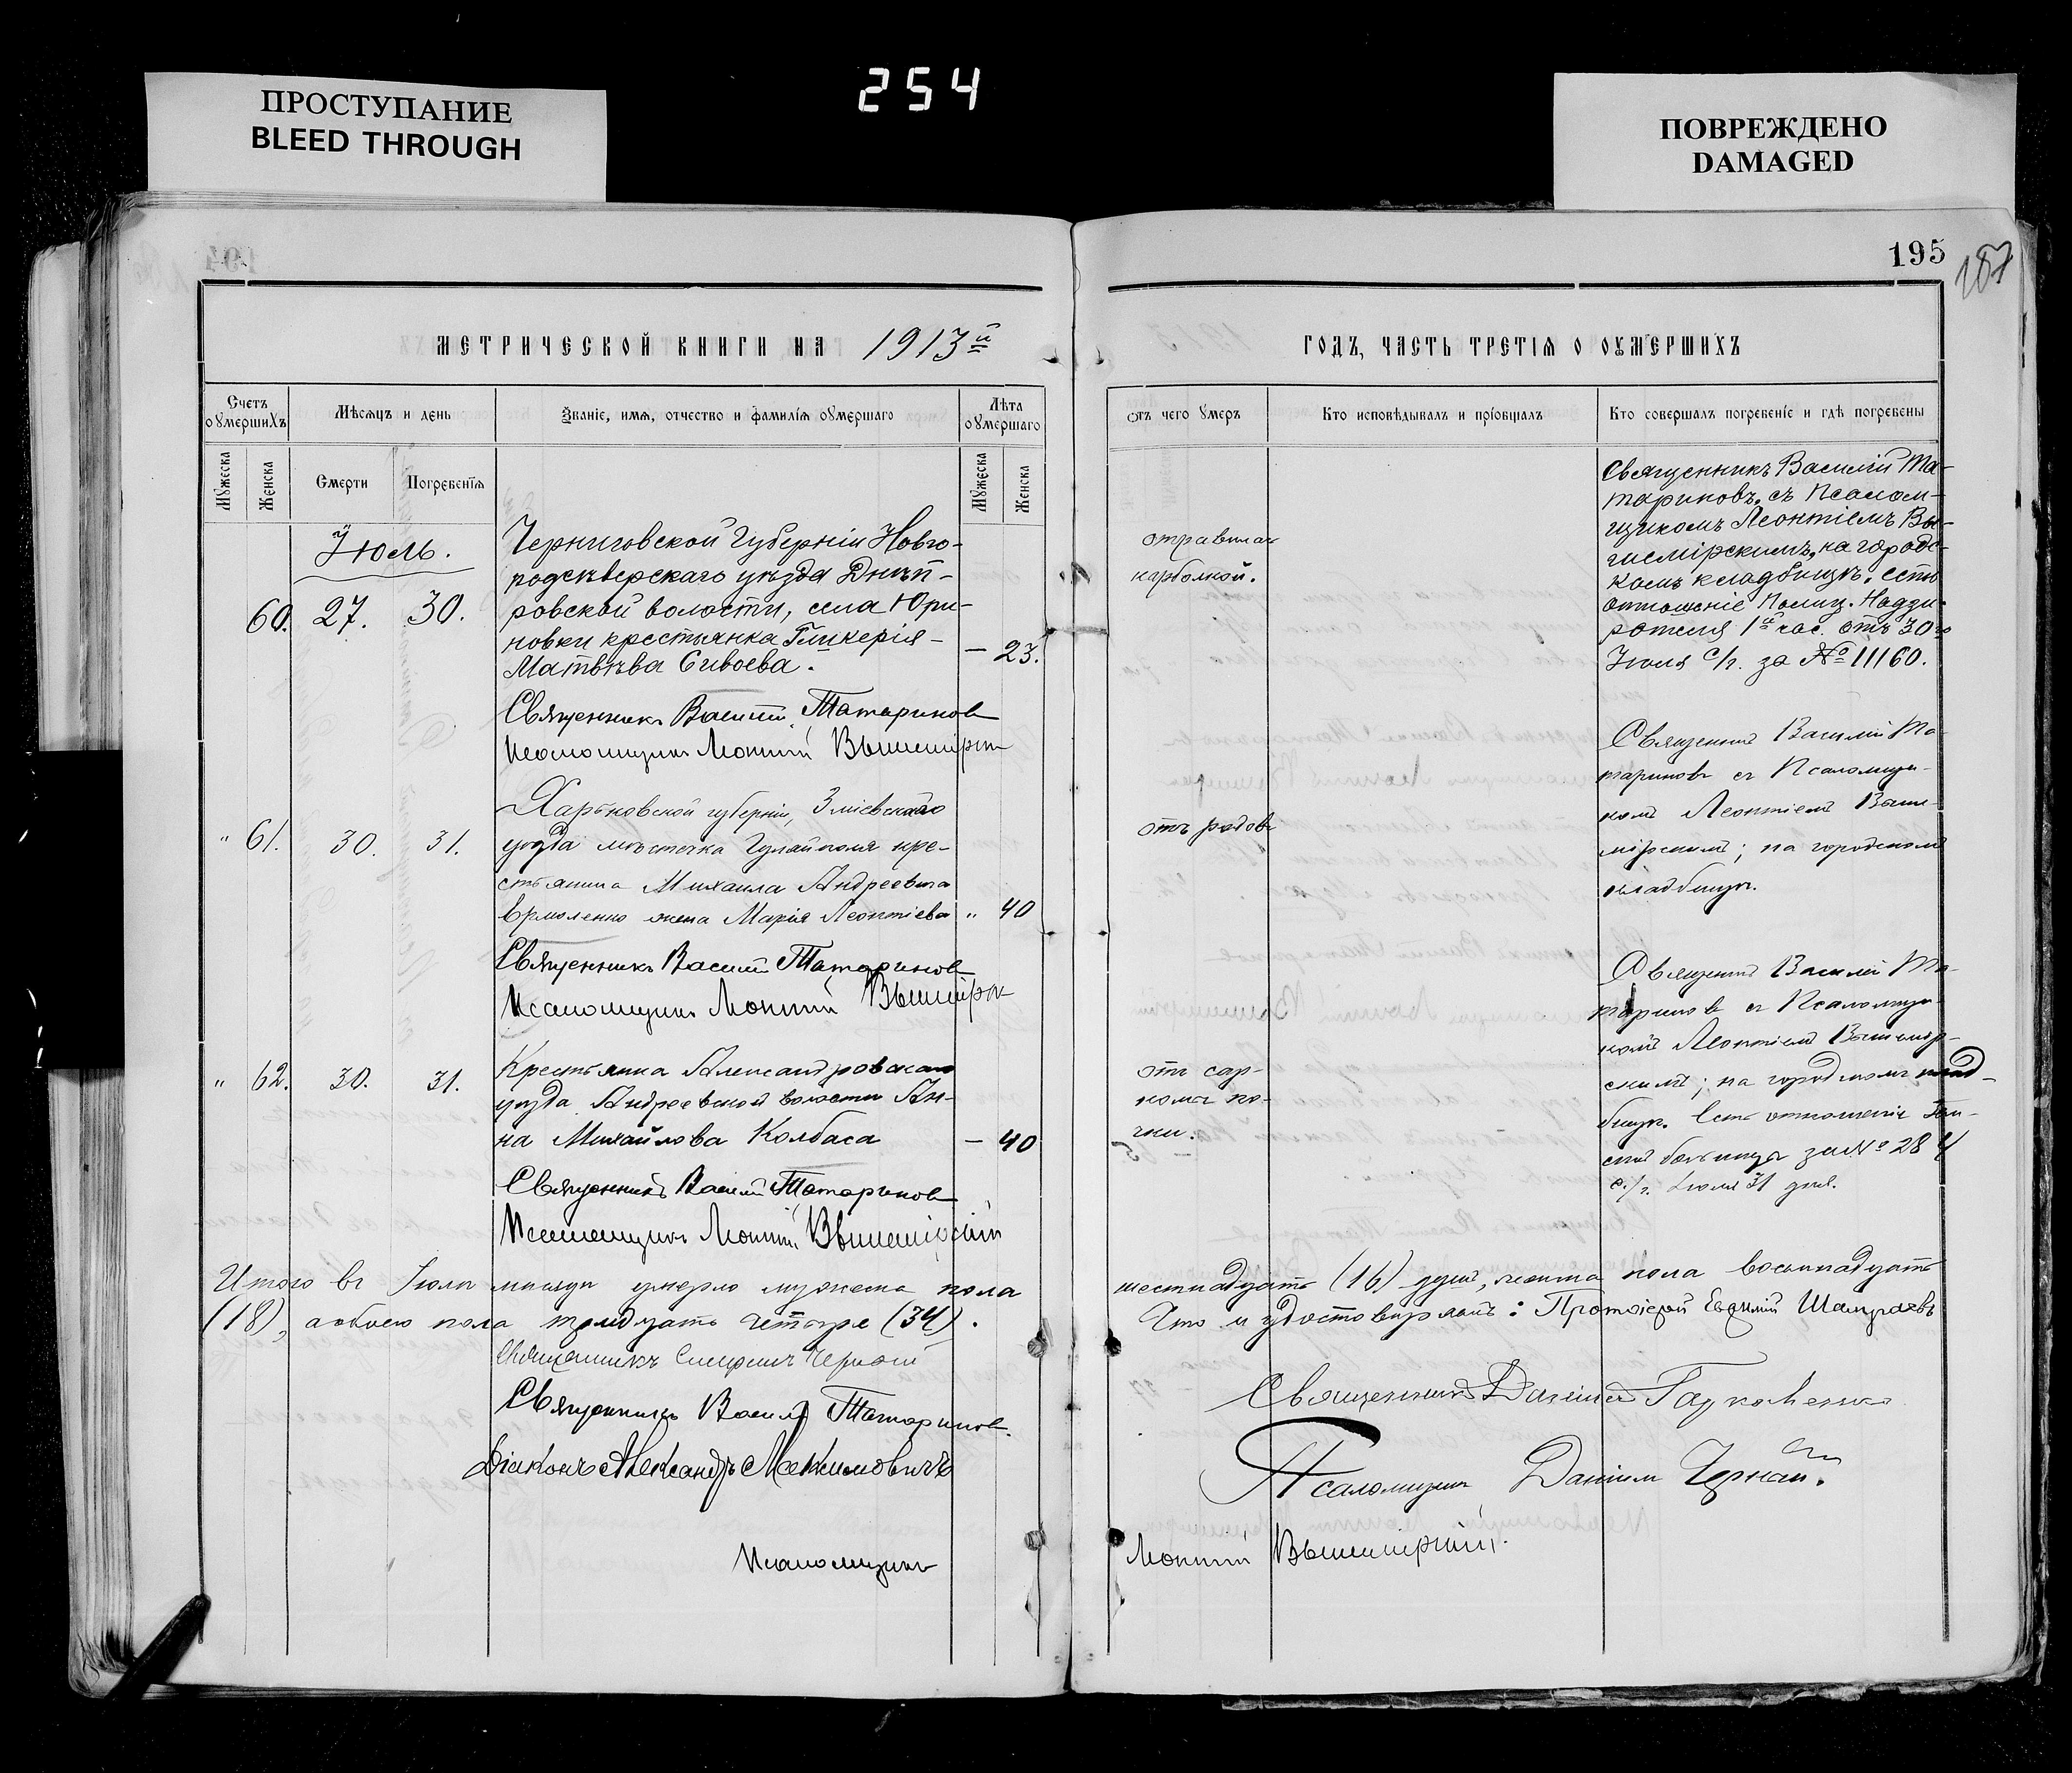 254
ПРОСТУПАНИЕ
BLEED THROUGH
ПОВРЕЖДЕНО
DAMAGED
195
187
МЕТРИЧЕСКОЙ КНИГИ НА 1913й
ГОДЪ, ЧАСТЬ ТРЕТІЯ О ОУМЕРШИХЪ
Счетъ оумершихъ
Мѣсяцъ и день
Званіе, имя, отчество и фамилія оумершаго
Лѣта оумершаго
Отъ чего умеръ
Кто исповѣдывалъ и пріобщалъ
Кто совершалъ погребеніе и гдѣ погребены
Мужеска
Женска
Смерти
Погребенія
Мужеска
Женска
Іюль.
60. 27. 30.
Черниговской Губерніи Новго-
родсѣверскаго уѣзда Днѣп-
ровской волости, села Юри-
новки крестьянка Гликерія
Матвѣева Сивоева. — 23.
отравилась
карболкой.
Священникъ Василій Та-
тариновъ съ Псалом-
щикомъ Леонтіемъ Вы-
шемірскимъ, на городс-
комъ кладбищѣ. Есть
отношеніе Полиц. Надзи-
рателя 1й час. отъ 30го
Іюля с/г. за № 11160.
Священникъ Василій Татаринов
Псаломщикъ Леонтій Вышемірск
" 61. 30. 31.
Харьковской губерніи, Зміевского
уѣзда мѣстечка Гуляйполя кре-
стьянина Михаила Андреевича
Ермоленко жена Марія Леонтіева " 40
отъ родов
Священникъ Василій Та-
тариновъ съ Псаломщи-
комъ Леонтіемъ Выше-
мірскимъ; на городскомъ
кладбищѣ.
Священникъ Василій Татаринов
Псаломщикъ Леонтій Вышемірск
" 62. 30. 31.
Крестьянка Александровскаго
уѣзда Андреевской волости Ан-
на Михайлова Колбаса — 40
отъ сар-
комы по-
чки.
Священникъ Василій Та-
тариновъ съ Псаломщи-
комъ Леонтіемъ Вышемір-
скимъ; на городскомъ клад-
бищѣ. Есть отношеніе
больницы за № 284
с./г. Іюля 31 дня.
Священникъ Василій Татаринов
Псаломщикъ Леонтій Вышемірскій
Итого въ Іюлѣ мѣсяцѣ умерло мужеска пола шестнадцать (16) душъ, женска пола восемнадцать
(18), а обоего пола тридцать четыре (34). Что и удостовѣряемъ: Протоіерей
Священникъ Черной
Священникъ Даніилъ
Священникъ Василій Татаринов.
Діаконъ Александръ Максимовичъ
Псаломщикъ Даніилъ Чернай.
Псаломщикъ Леонтій Вышемірскій.